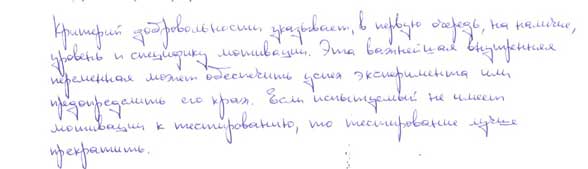 Критерий добровольности указывает, в первую очередь, на наличие,
уровень и специфику мотивации. Эта важнейшая внутренняя
переменная может обеспечить успех эксперимента или
предопределить его крах. Если испытуемый не имеет
мотивации к тестированию, то тестирование лучше
прекратить.